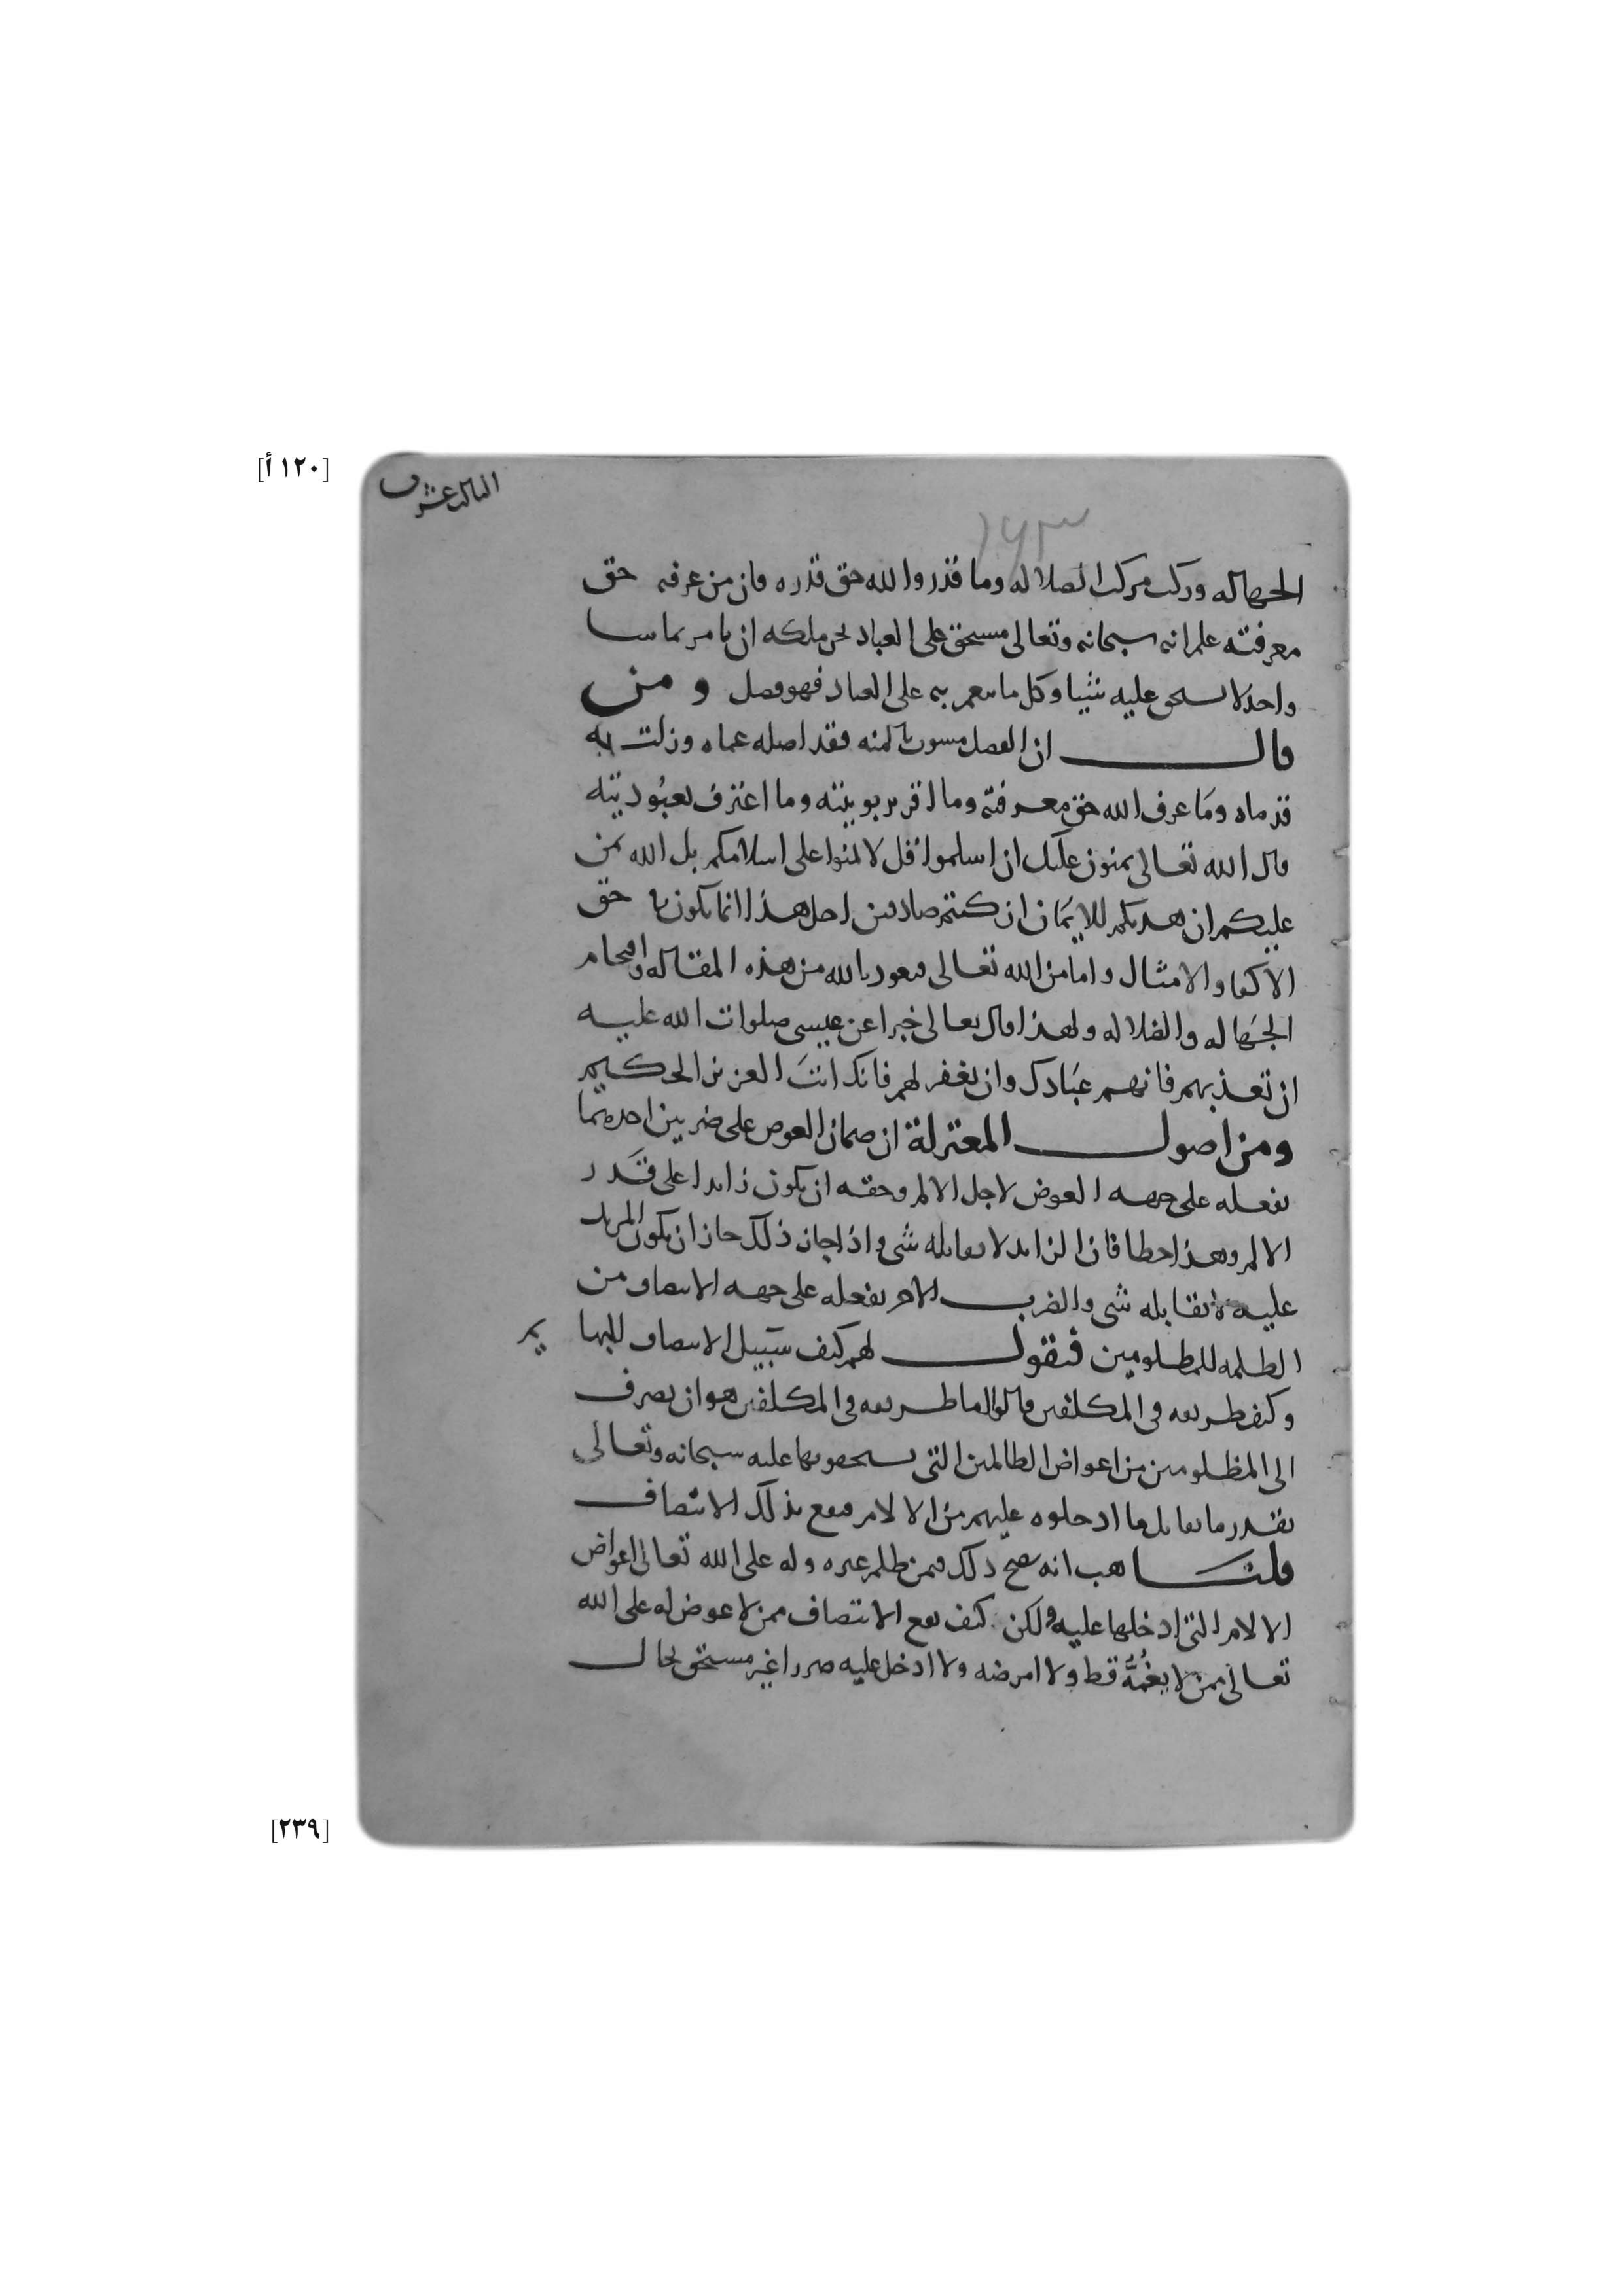 [١٢٠ أ]
الثالث عشر
١٤٣
الجهاله وركب مركب الضلاله وما قدروا الله حق قدره فان من عرفه حق
معرفته علم انه سبحانه وتعالى مستحق على العباد بحق ملكه ان يامر بما يشا
واحد لا يستحق عليه شيئا وكل ما ينعم به على العباد فهو فضل ومن
قال ان الفضل مشوب بالمنه فقد اضله عماه وزلت به
قدماه وما عرف الله حق معرفته وما اقر بربوبيته وما اعترف بعبوديته
قال الله تعالى يمنون عليك ان اسلموا قل لا تمنوا على اسلامكم بل الله يمن
عليكم ان هديكم للايمان ان كنتم صادقين اجل هذا انما يكون في حق
الاكفا والامثال واما من الله تعالى فنعوذ بالله من هذه المقاله واقتحام
الجهاله والضلاله ولهذا قال تعالى خبرا عن عيسى صلوات الله عليه
ان تعذبهم فانهم عبادك وان تغفر لهم فانك انت العزيز الحكيم
ومن اصول المعتزلة ان ضمان العوض على ضربين احدهما
يفعله على جهه العوض لاجل الالم وحقه ان يكون زايدا على قدر
الالم وهذا خطا فان الزايد لا يقابله شي واذا جاز ذلك جاز ان يكون المزيد
عليه لا يقابله شي والضرب الاخر يفعله على جهه الانتصاف من
الظلمه للمظلومين فنقول لهم كيف سبيل الانتصاف للبهايم
وكيف طريقه في المكلفين قالوا اما طريقه في المكلفين هو ان يصرف
الى المظلومين من اعواض الظالمين التي يستحقونها عليه سبحانه وتعالى
بقدر ما يقابل ما ادخلوه عليهم من الالام فيقع بذلك الانتصاف
قلنا هب انه يصح ذلك فيمن ظلم غيره وله على الله تعالى اعواض
الالام التي ادخلها عليه ولكن كيف يقع الانتصاف ممن لا عوض له على الله
تعالى ممن لا يغمه قط ولا امرضه ولا ادخل عليه ضررا غير مستحق بحال
[٢٣٩]